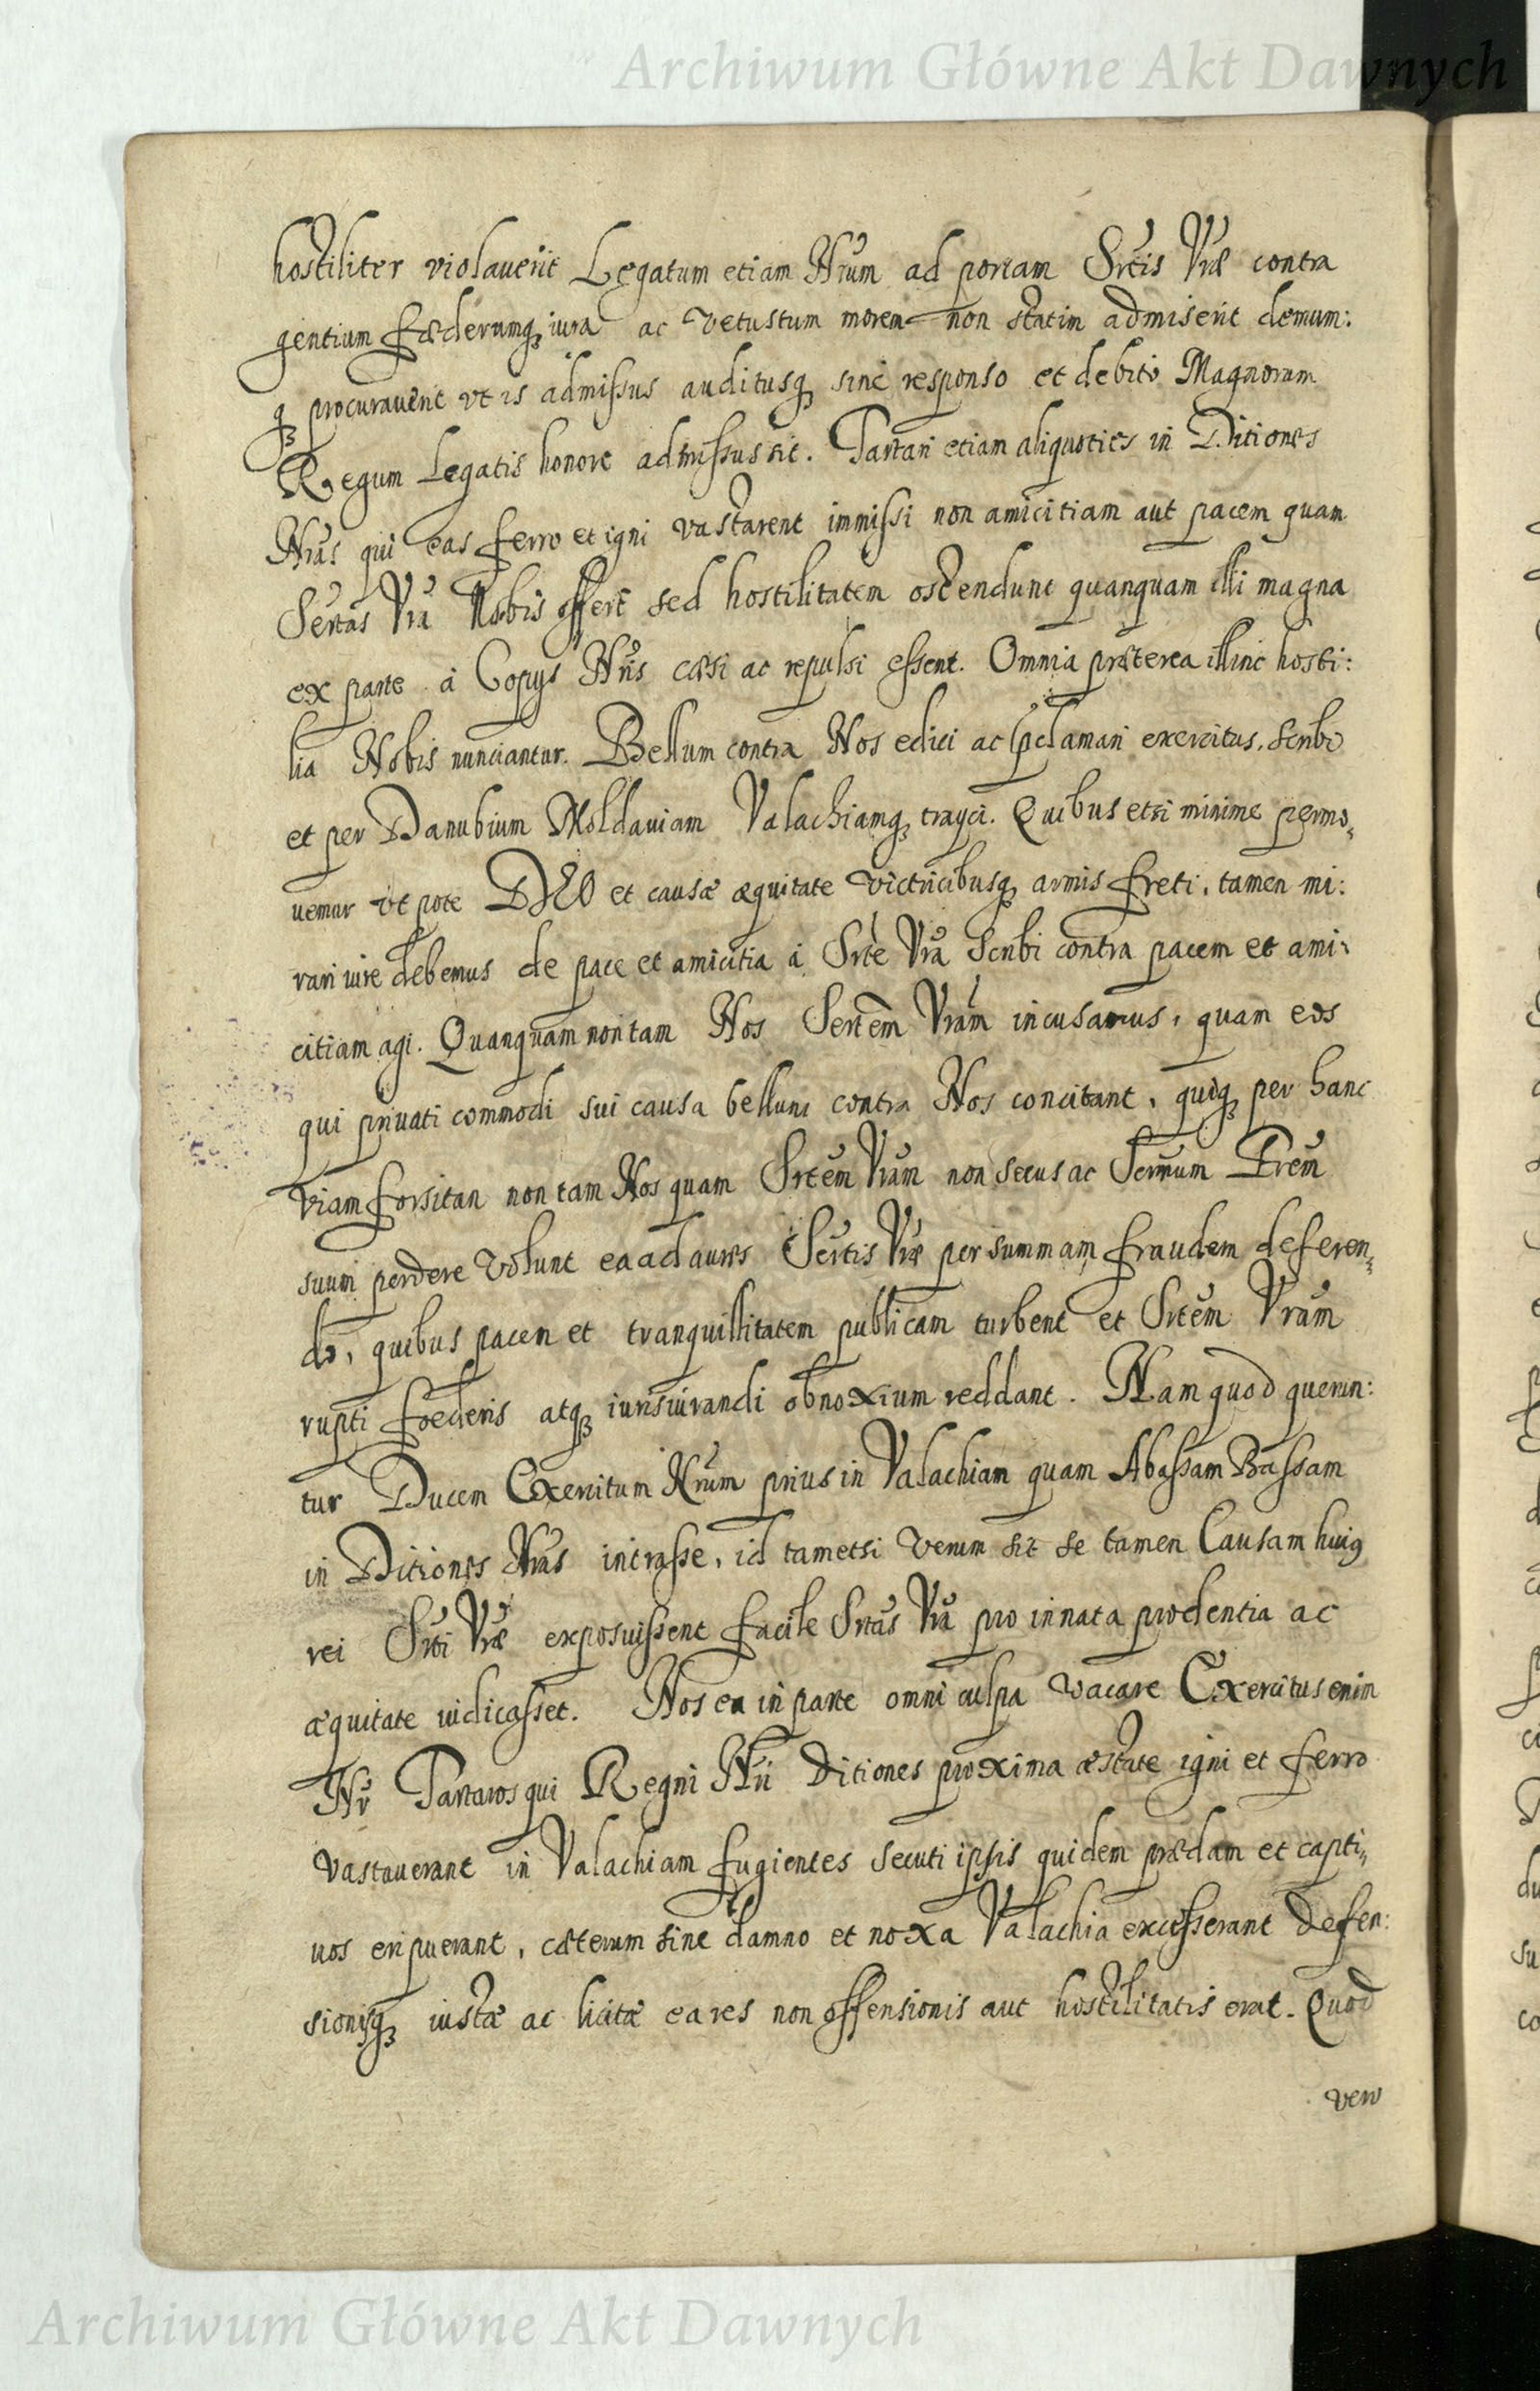 Archiwum Główne Akt Dawnych
hostiliter violauerit Legatum etiam Nrum ad portam Srtis Vrae contra
gentium faederumq iura ac vetustum morem non statim admiserit demum:
q procurauerit vt is admissus auditusq sine responso et debito Magnorum
Regum Legatis honore admissus sit. Tartari etiam aliquoties in Ditiones
Nras qui eas ferro et igni vastarent immissi non amicitiam aut pacem quam
Sertas Vra Nobis offert sed hostilitatem ostendunt quanquam illi magna
ex parte à Copijs Nris caesi ac repulsi essent. Omnia praeterea illinc hosti:
lia Nobis nunciantur. Bellum contra Nos edici ac pclamari exercitus, scribi
et per Danubium Moldauiam Valachiamq trayci. Quibus etsi minime permo„
uemur vt pote DEO et causae aequitate victricibusq armis freti, tamen mi:
rari iure debemus de pace et amicitia à Srte Vra scribi contra pacem et ami:
citiam agi. Quanquam non tam Nos Sertem Vram incusamus, quam eos
qui priuati commodi sui causa bellum contra Nos concitant, quiq per hanc
viam forsitan non tam Nos quam Srtem Vram non secus ac Sermum Frem
suum perdere volunt ea ad aures Sertis Vrae per summam fraudem deferen„
do, quibus pacem et tranquillitatem publicam turbent et Srtem Vram
rupti foederis atq iurisiurandi obnoxium reddant. Nam quod querun:
tur Ducem Exercituum Nrum prius in Valachiam quam Abassam Bassam
in Ditiones Nras intrasse, id tametsi verum sit se tamen Causam huiq
rei Srti Vrae exposuissent facile Srtas Vra pro innata prudentia ac
aequitate iudicasset. Nos ea in parte omni culpa vacare Exercitus enim
Nr Tartaros qui Regni Nri Ditiones proxima aestate igni et ferro
vastauerant in Valachiam fugientes secuti ipsis quidem praedam et capti„
uos eripuerant, caeterum sine damno et noxa Valachia excesserant Defen:
sionisq iustae ac licitae ea res non offensionis aut hostilitatis erat. Quod
vero
Archiwum Główne Akt Dawnych